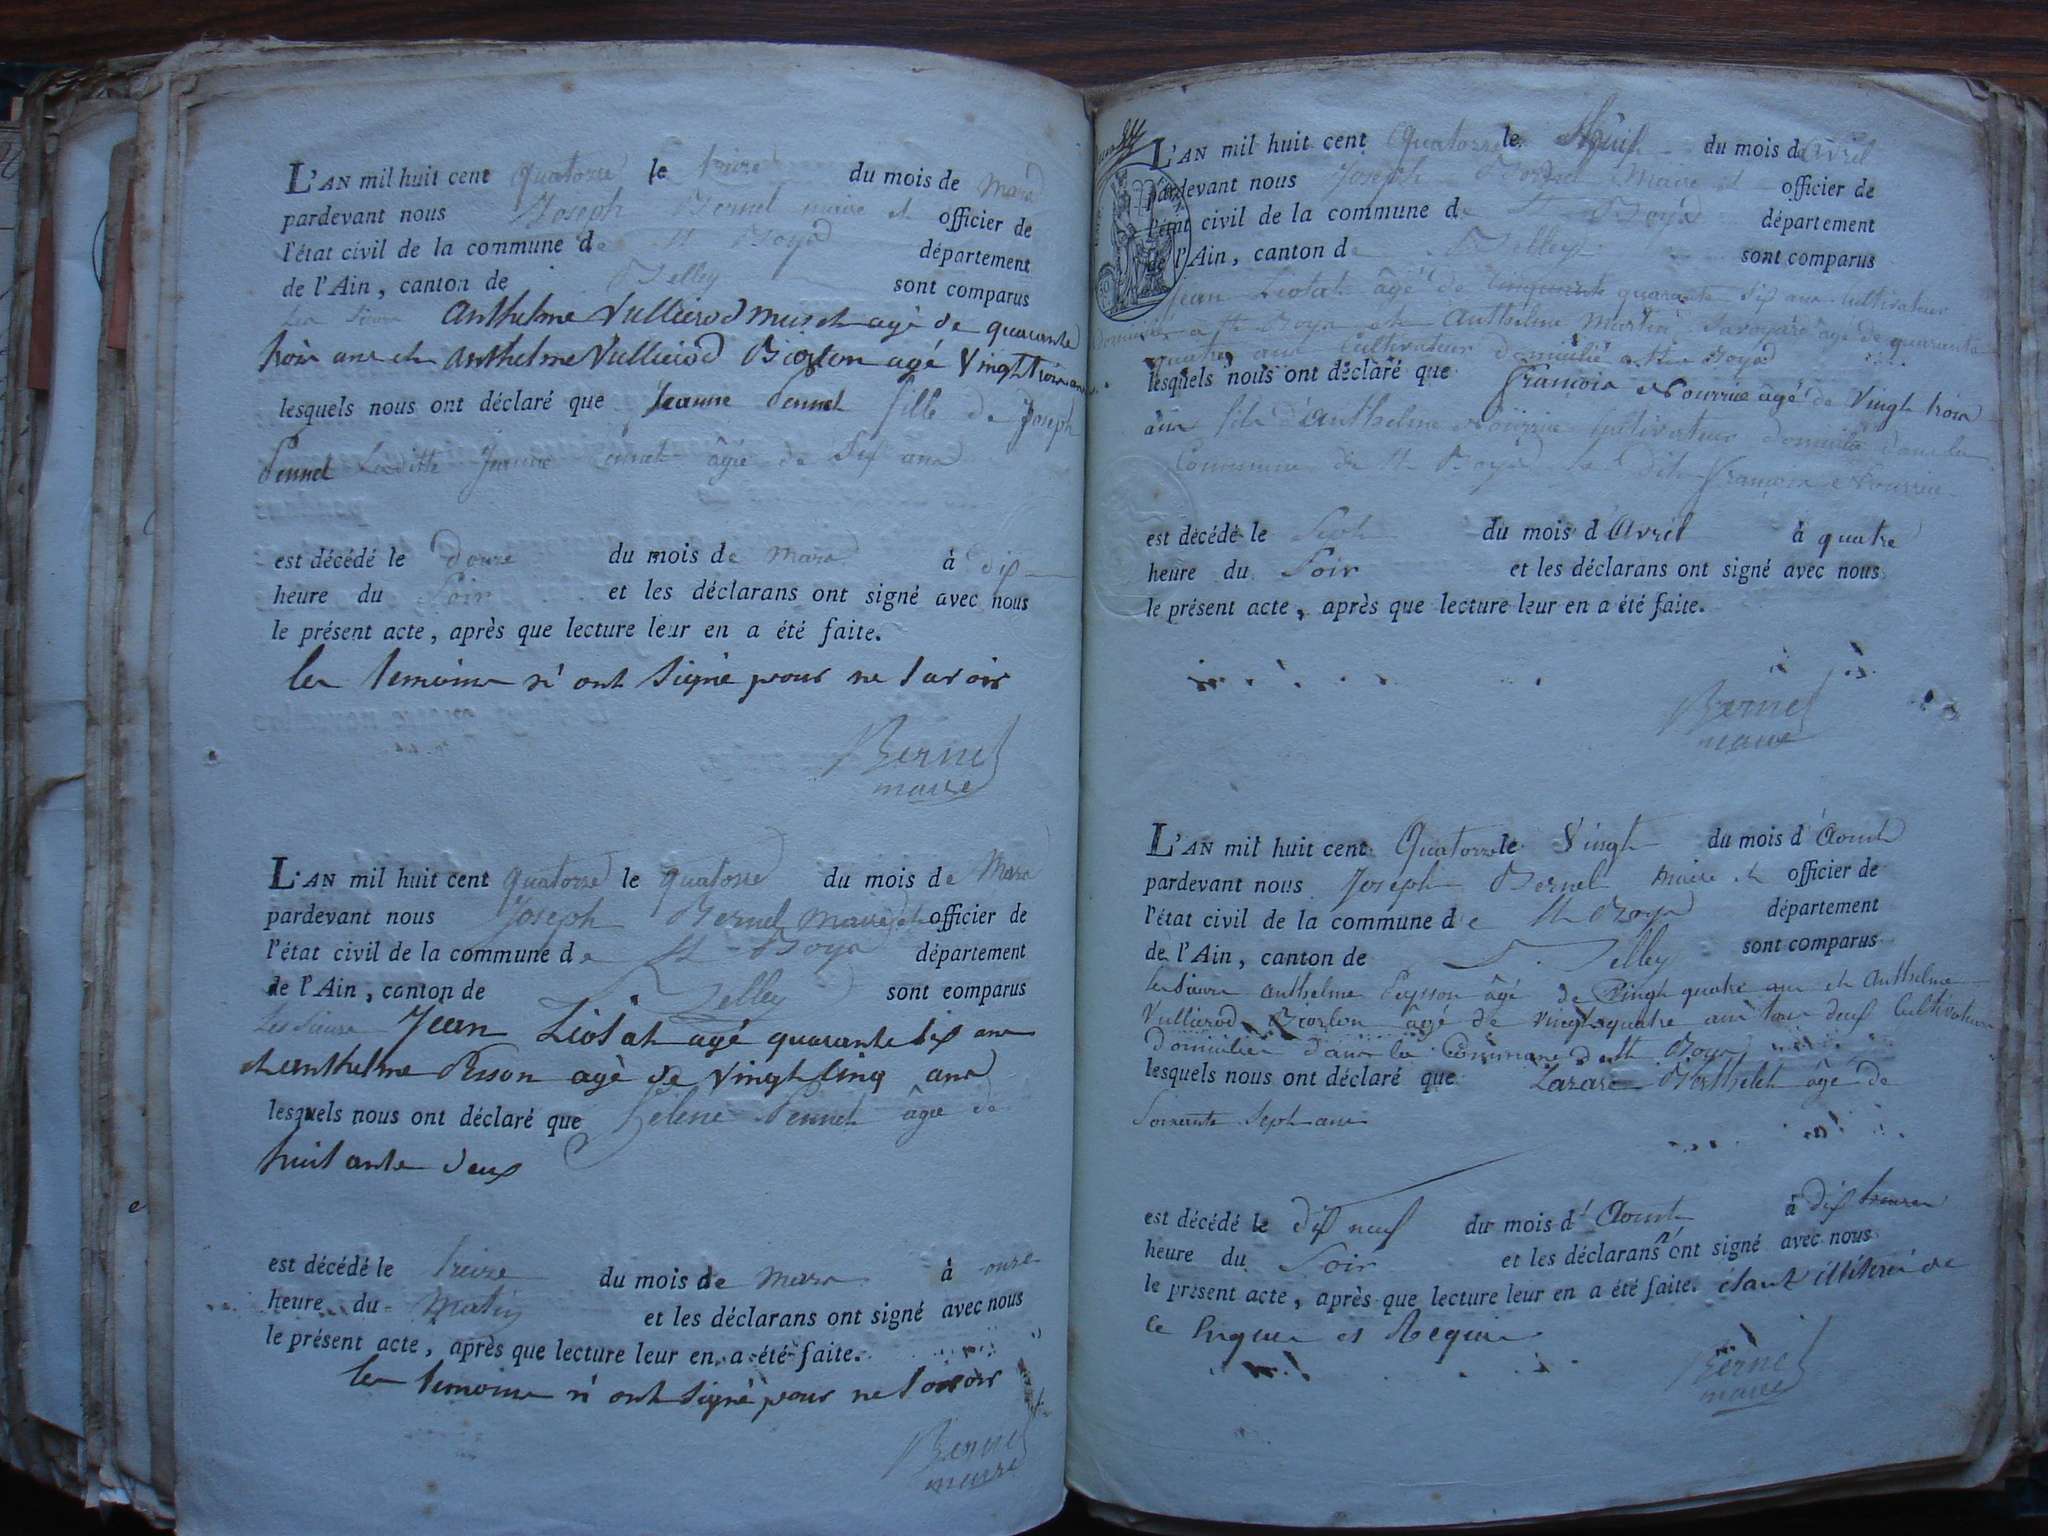 L'AN mil huit cent quatorze le treize du mois de Mars
pardevant nous Joseph Bernel maire et officier de
l'état civil de la commune de St Boys département
de l'Ain, canton de Belley sont comparus
les sieurs Anthelme Vullierod Muset agé de quarante
trois ans et Anthelme Vullierod Biorlon agé Vingt trois ans
lesquels nous ont déclaré que Jeanne Pennet fille de Joseph
Pennet Laditte Jeanne Pennet âgée de Six ans
est décédé le Douze du mois de Mars à dix
heure du Soir et les déclarans ont signé avec nous
le présent acte, après que lecture leur en a été faite.
les temoins n'ont Signé pour ne Savoir
Bernel
maire
L'AN mil huit cent quatorze le quatorze du mois de Mars
pardevant nous Joseph Bernel Maire et officier de
l'état civil de la commune de St Boys département
de l'Ain, canton de Belley sont comparus
Les Sieurs Jean Liotat agé quarante Six ans
et anthelme Peson agé de Vingt Cinq ans
lesquels nous ont déclaré que helene Pennet âgée de
huitante deux
est décédé le treize du mois de Mars à onze
heure du Matin et les déclarans ont signé avec nous
le présent acte, après que lecture leur en a été faite.
les temoins n'ont Signé pour ne Savoir
Bernel
maire
L'AN mil huit cent Quatorze le Huit du mois d'Avril
pardevant nous Joseph Bernel Maire et officier de
l'état civil de la commune de St Boys département
de l'Ain, canton de Belley sont comparus
Jean Liotat âgé de cinquante quarante Six ans Cultivateur
domicilié a St Boys et Anthelme Martin Savoyard agé de quarante
quatre ans Cultivateur domicilié a St Boys
lesquels nous ont déclaré que francois Nourrice âgé de Vingt trois
ans fils d'Anthelme Nourrice Cultivateur domicilié dans la
Commune de St Boys le dit francois Nourrice
est décédé le Sept du mois d'Avril à quatre
heure du Soir et les déclarans ont signé avec nous
le présent acte, après que lecture leur en a été faite.
Bernel
maire
L'AN mil huit cent Quatorze le Vingt du mois d'Aoust
pardevant nous Joseph Bernel Maire et officier de
l'état civil de la commune de St Boys département
de l'Ain, canton de Belley sont comparus
les Sieurs Anthelme Peysson âgé de Vingt quatre ans et Anthelme
Vullierod Biorlon âgé de vingt quatre ans tous deux Cultivateurs
Domiciliés dans la Commune de St Boys
lesquels nous ont déclaré que Lazare Berthelet âgé de
Soixante Sept ans
est décédé le dix neuf du mois d'Aoust à dix heures
heure du Soir et les déclarans ont signé avec nous
le présent acte, après que lecture leur en a été faite. étant illitéré de
ce Enquis et Requis
Bernel
maire